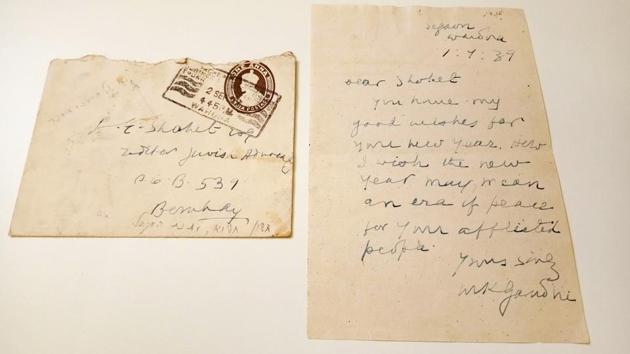 Segaon
Wardha
1.9.39
Dear Shohet
You have my
good wishes for
your new year. How
I wish the new
year may mean
an era of peace
for your afflicted
people.
Yours sincely
MKGandhi
A. E. Shohet Esq
Editor Jewish Advocate
P.O.B. 539
Bombay
ONE ANNA
INDIA POSTAGE
2 SEP
4.45 PM
WARDHA